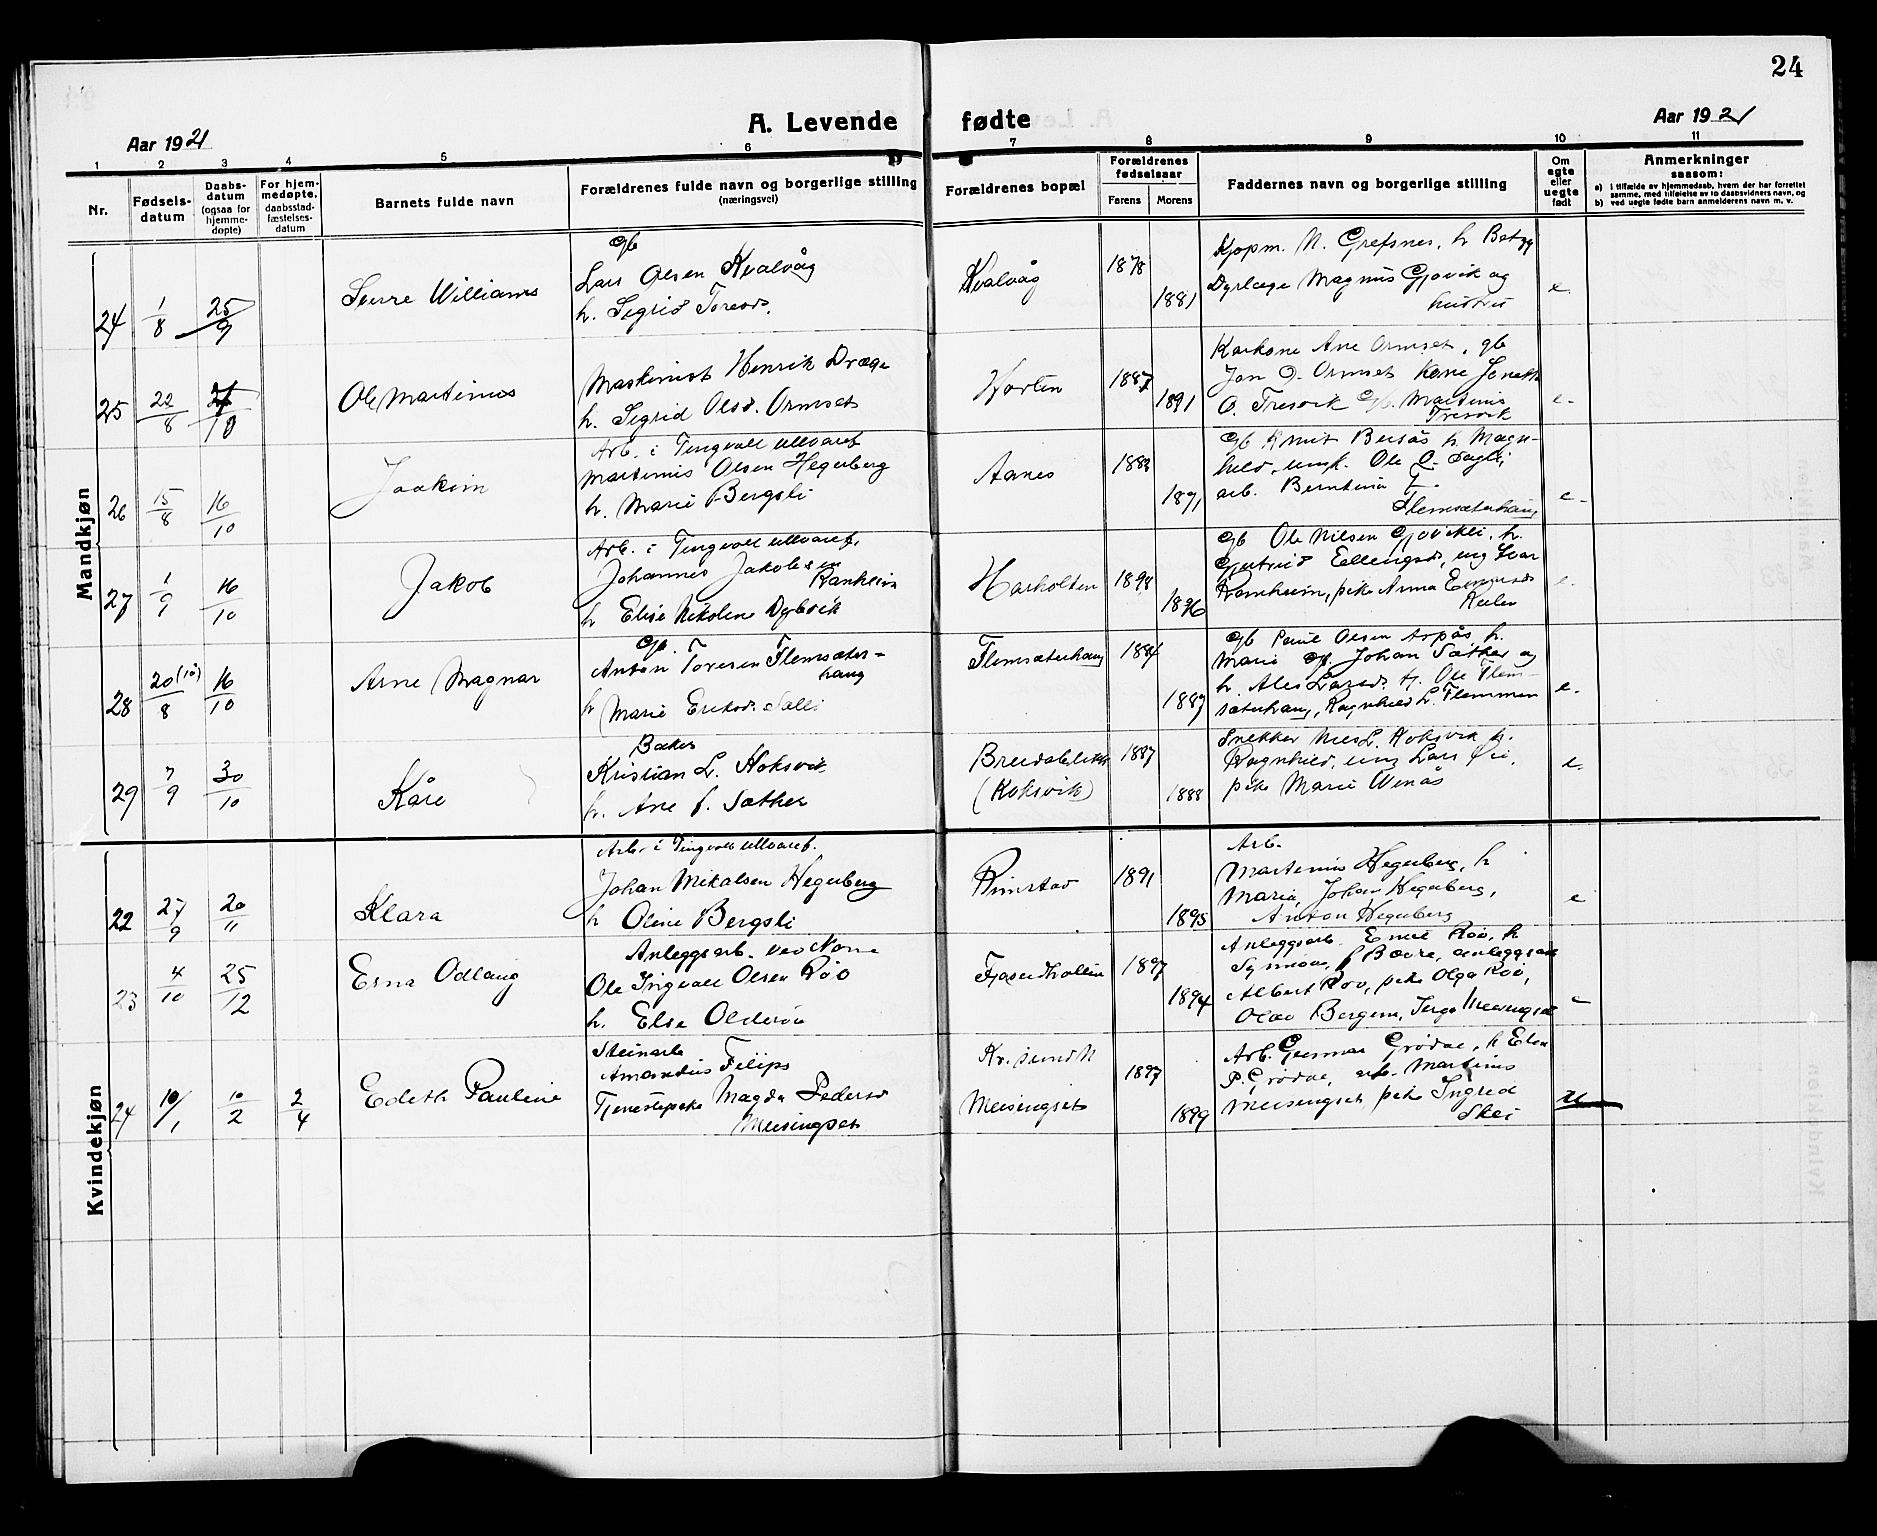 24
Aar 1921
A. Levende fødte
Aar 1921
1 2 3 4 5 6 7 8 9 10 11
Nr.
Fødsels-
datum
Daabs-
datum
(ogsaa for
hjemme-
døpte)
For hjem-
medøpte,
daabsstad-
fæstelses-
datum
Barnets fulde navn
Forældrenes fulde navn og borgerlige stilling
(næringsvei)
Forældrenes bopæl
Forældrenes
fødselsaar
Farens
Morens
Faddernes navn og borgerlige stilling
Om
egte
eller
uegte
født
Anmerkninger
saasom:
a) i tilfælde av hjemmedaab, hvem der har forrettet
samme, med tilføielse av to daabsvidners navn, og
b) ved uegte fødte barn anmelderens navn m. v.
Mandkjøn
24 1/8 25/9
Gb
Lars Olsen Kvalvåg
h. Sigrid Toresd.
Kvalvåg
1878
1881
Kjøpm. N. Grefsnes, h. Betzy
Dyrlæge Magnus Gjøvik og
hustru
e.
25 22/8
10
Ole Martinus
Maskinist Henrik Dræge
h. Sigrid Olsd. Ormset
Horten
1887
1891
Kårkone Ane Ormset, gb
Jon O. Ormset kone
O. Tresvik Gb. Martinus
Tresvik
e.
26 15/8 16/10
Joakim
Arb. i Tingvoll ullvaref
Martinus Olsen Hegerberg
h. Marie Bergsli
Aanes
1891
Gb Knut h. Magn-
hild, ungk. Ole
arb. Berntinus
Flemsæterhaug
e.
27 1/9 16/10
Jakob
Arb. i Tingvoll ullvaref.
Johannes Jakobsen
Ranheim
h. Elise Nikoline Dybvik
Harholten
1898
1896
Gb Ole Nilsen Gjøvikli, h.
Gjertrud Ellingsd, ung Ivar
Ranheim, pike Anna
e.
28 20(10)/8 16/10
Arne Magnar
Gb. T
Anton Toresen Flemsæter-
haug
h. Marie Eriksd.
Flemsæterhaug
1884
1887
Gb Paul Olsen Aspås h.
Marie Gb. Johan Sæther og
h. Ales Larsd. Ole Flem-
sæterhaug, Ragnhild L. Flemmen
e.
29 7/9 30/10
Kåre
Baker
Kristian L. Koksvik
h. Ane J. Sæther
Breidablikk
(Koksvik)
1887
1888
Snekker Nils L. Koksvik h.
Ragnhild, ung Lars Øri,
pike Marie Wenås
e.
Kvindekjøn
22 27/9 20/11
Klara
Arb. i Tingvoll ullvaref.
Johan Mikalsen Hegerberg
h Oline Bergsli
Rimstad
1891
1895
Arb.
Martinus Hegerberg, h
Marie, Johan Hegerberg,
Anton Hegerberg
e
23 4/10 25/12
Erna Odlaug
Anleggsarb. ved
Ole Ingvald Olsen Røv
h. Else Olderøi
1897
1894
Anleggsarb. Emil Røv, h
anleggsarb
Albert Røv, pike Olga Røv,
Olav Bergem, Inga Meisingset
e
24 10/1 10/2 2/4
Edith Pauline
Steinarb
Amandus Filips
Tjenestepike Magda Pedersd
Meisingset
Kr.sund N
Meisingset
1897
1899
Arb. Gunnar Grødae, h
P. Grødae, arb. Martinus
Meisingset, pike Ingrid
u